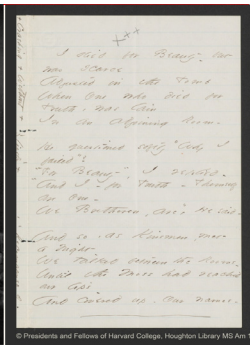 I died for Beauty - but
was scarce
Adjusted in the Tomb
When One who died for
Truth, was lain
In an adjoining Room -
He questioned softly "Why I
failed"?
"For Beauty", I replied -
And I - for Truth - Themself
are One -
We Bretheren, are", He said -
And so, as Kinsmen, met
a Night -
We talked between the Rooms -
Until the Moss had reached
our lips -
And covered up - our names -
© Presidents and Fellows of Harvard College, Houghton Library MS Am